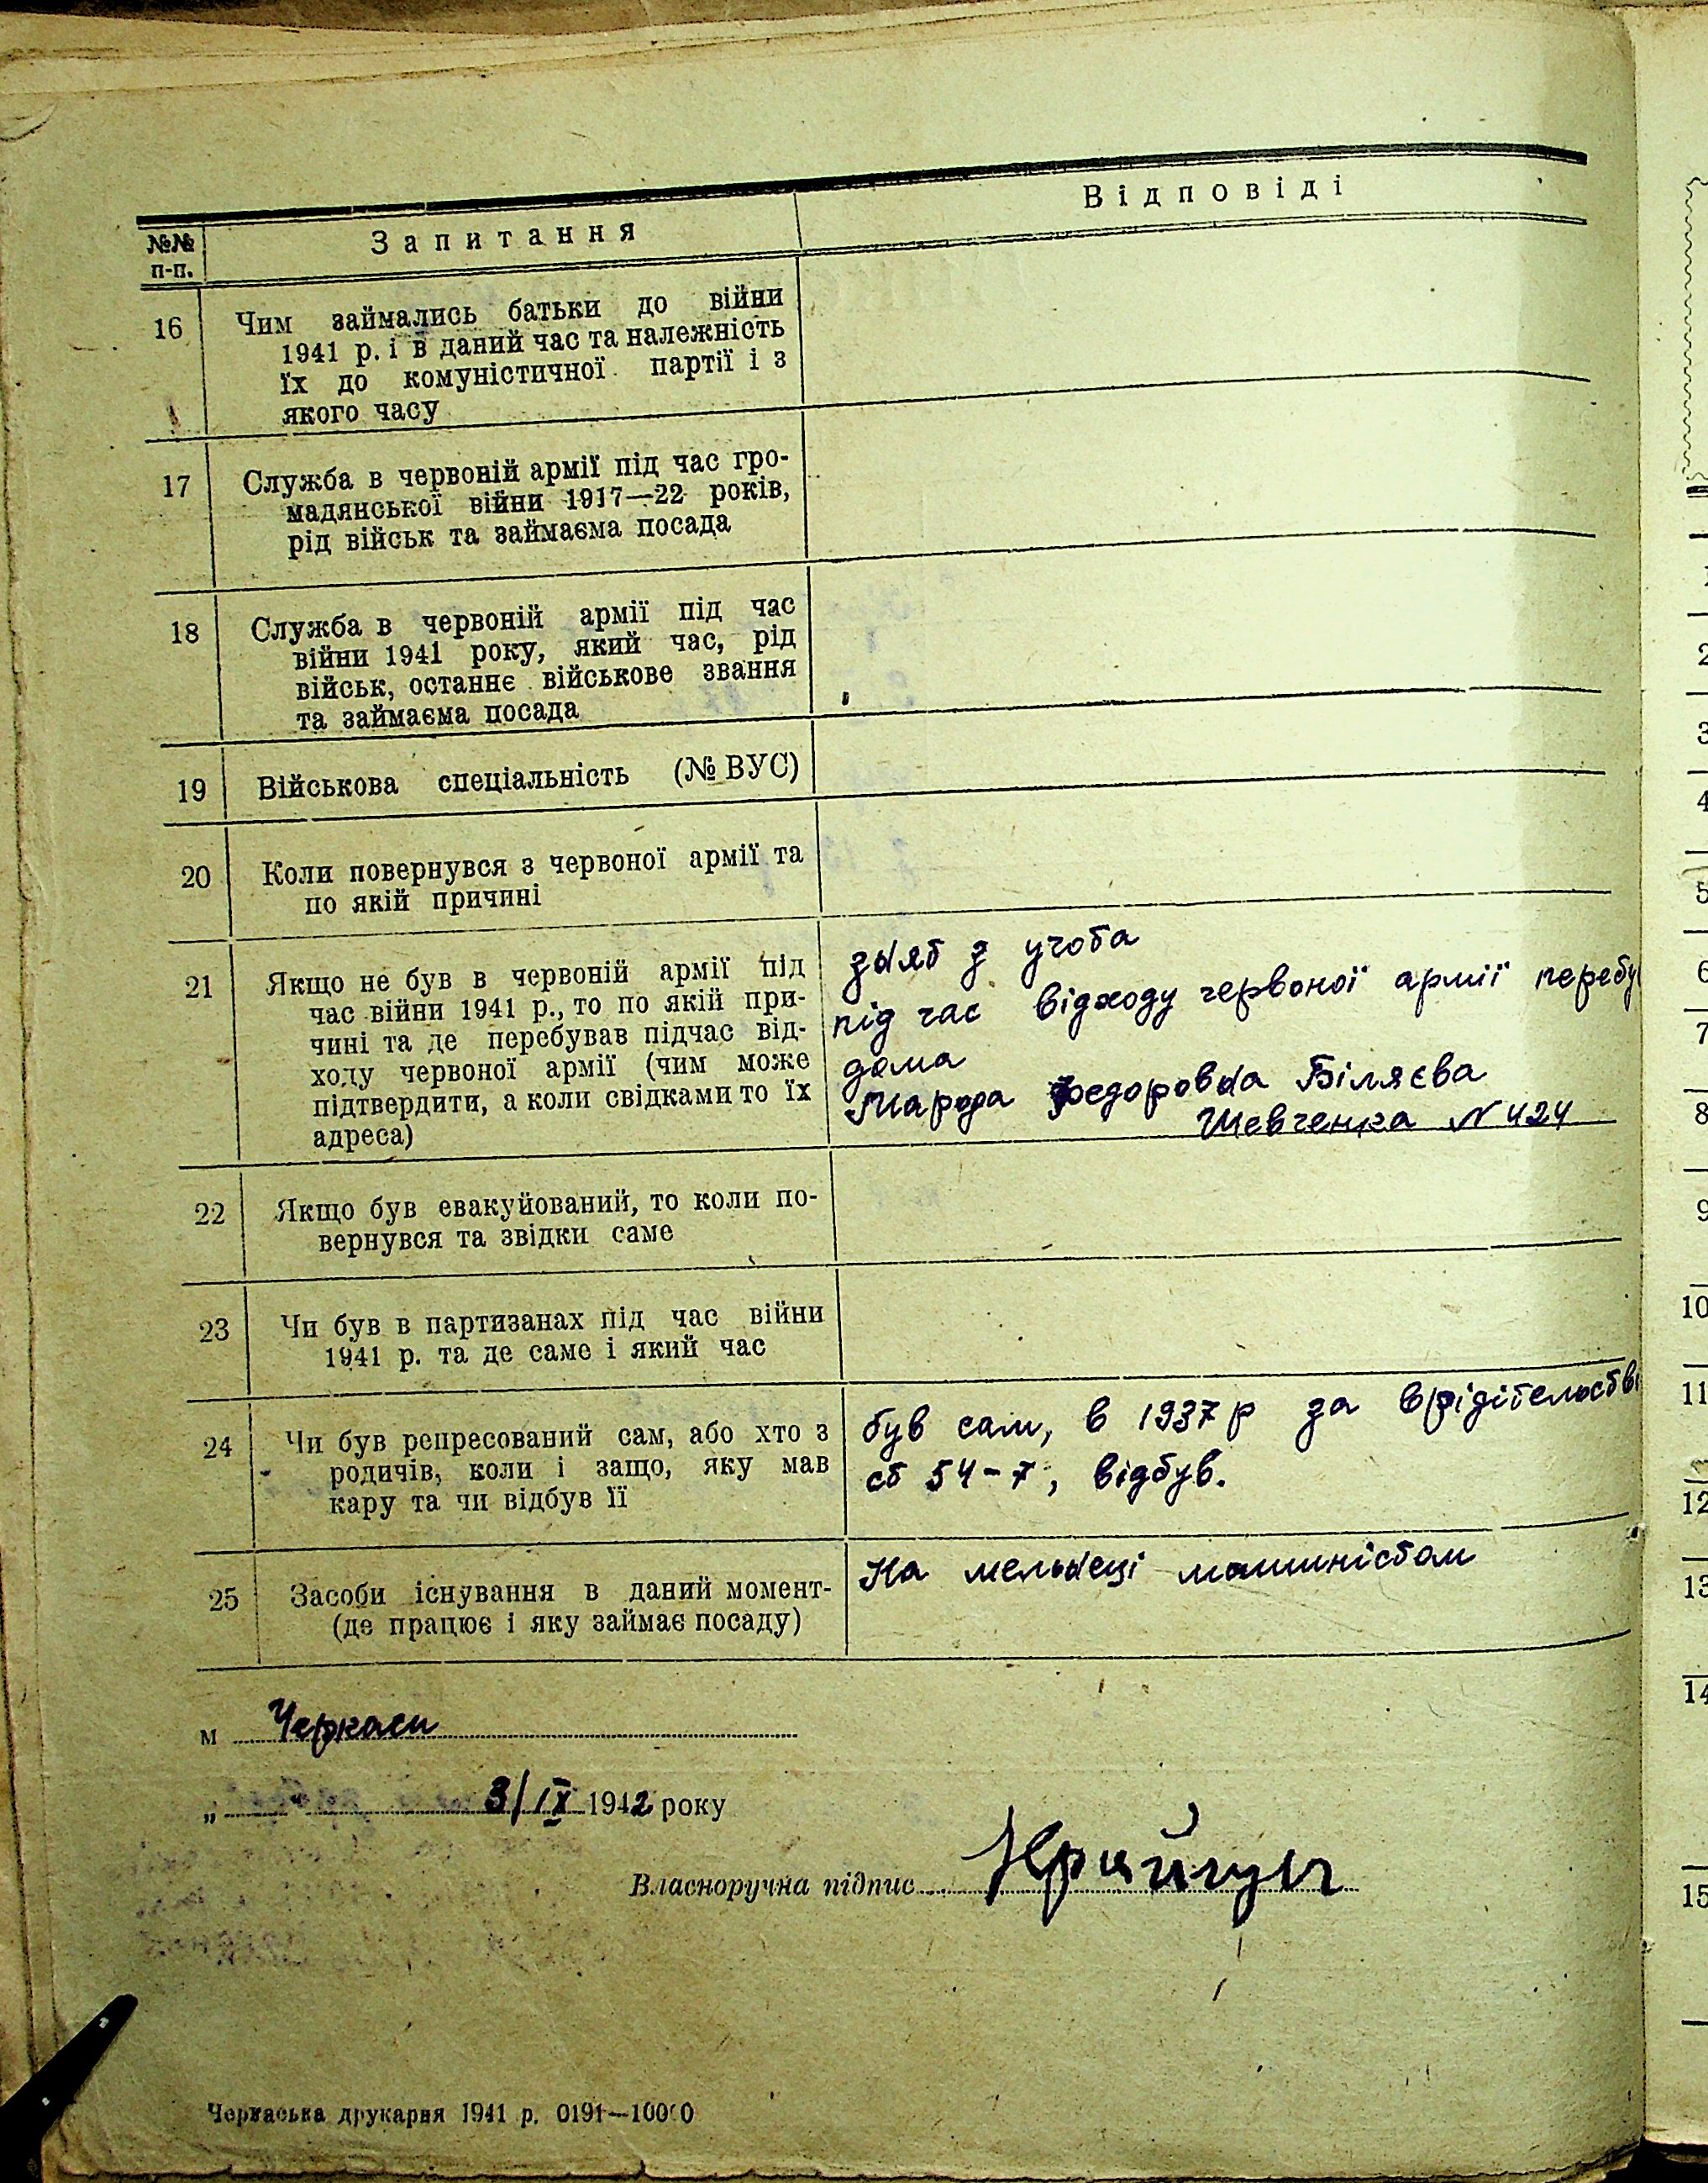 №№
п-п.
Запитання
Відповіді
16
Чим займались батьки до війни
1941 р. і в даний час та належність
їх до комуністичної партії і з
якого часу
17
Служба в червоній армії під час гро-
мадянської війни 1917—22 років,
рід військ та займаєма посада
18
Служба в червоній армії під час
війни 1941 року, який час, рід
військ, останнє військове звання
та займаєма посада
19
Військова спеціальність (№ ВУС)
20
Коли повернувся з червоної армії та
по якій причині
21
Якщо не був в червоній армії під
час війни 1941 р., то по якій при-
чині та де перебував підчас від-
ходу червоної армії (чим може
підтвердити, а коли свідками то їх
адреса)
з учота
під час відходу червоної армії перебу
дома
Федоровна Біляєва
Шевченка N 424
22
Якщо був евакуйований, то коли по-
вернувся та звідки саме
23
Чи був в партизанах під час війни
1941 р. та де саме і який час
24
Чи був репресований сам, або хто з
родичів, коли і защо, яку мав
кару та чи відбув її
був сам, в 1937 р за врідітельстві
ст 54-7, відбув.
25
Засоби існування в даний момент-
(де працює і яку займає посаду)
На мельнеці машиністом
м Черкаси
„ " 3/IX 1942 року
Власноручна підпис
Черкаська друкарня 1941 р. 0191—10000
2
3
4
5
6
7
8
9
10
11
12
13
14
15